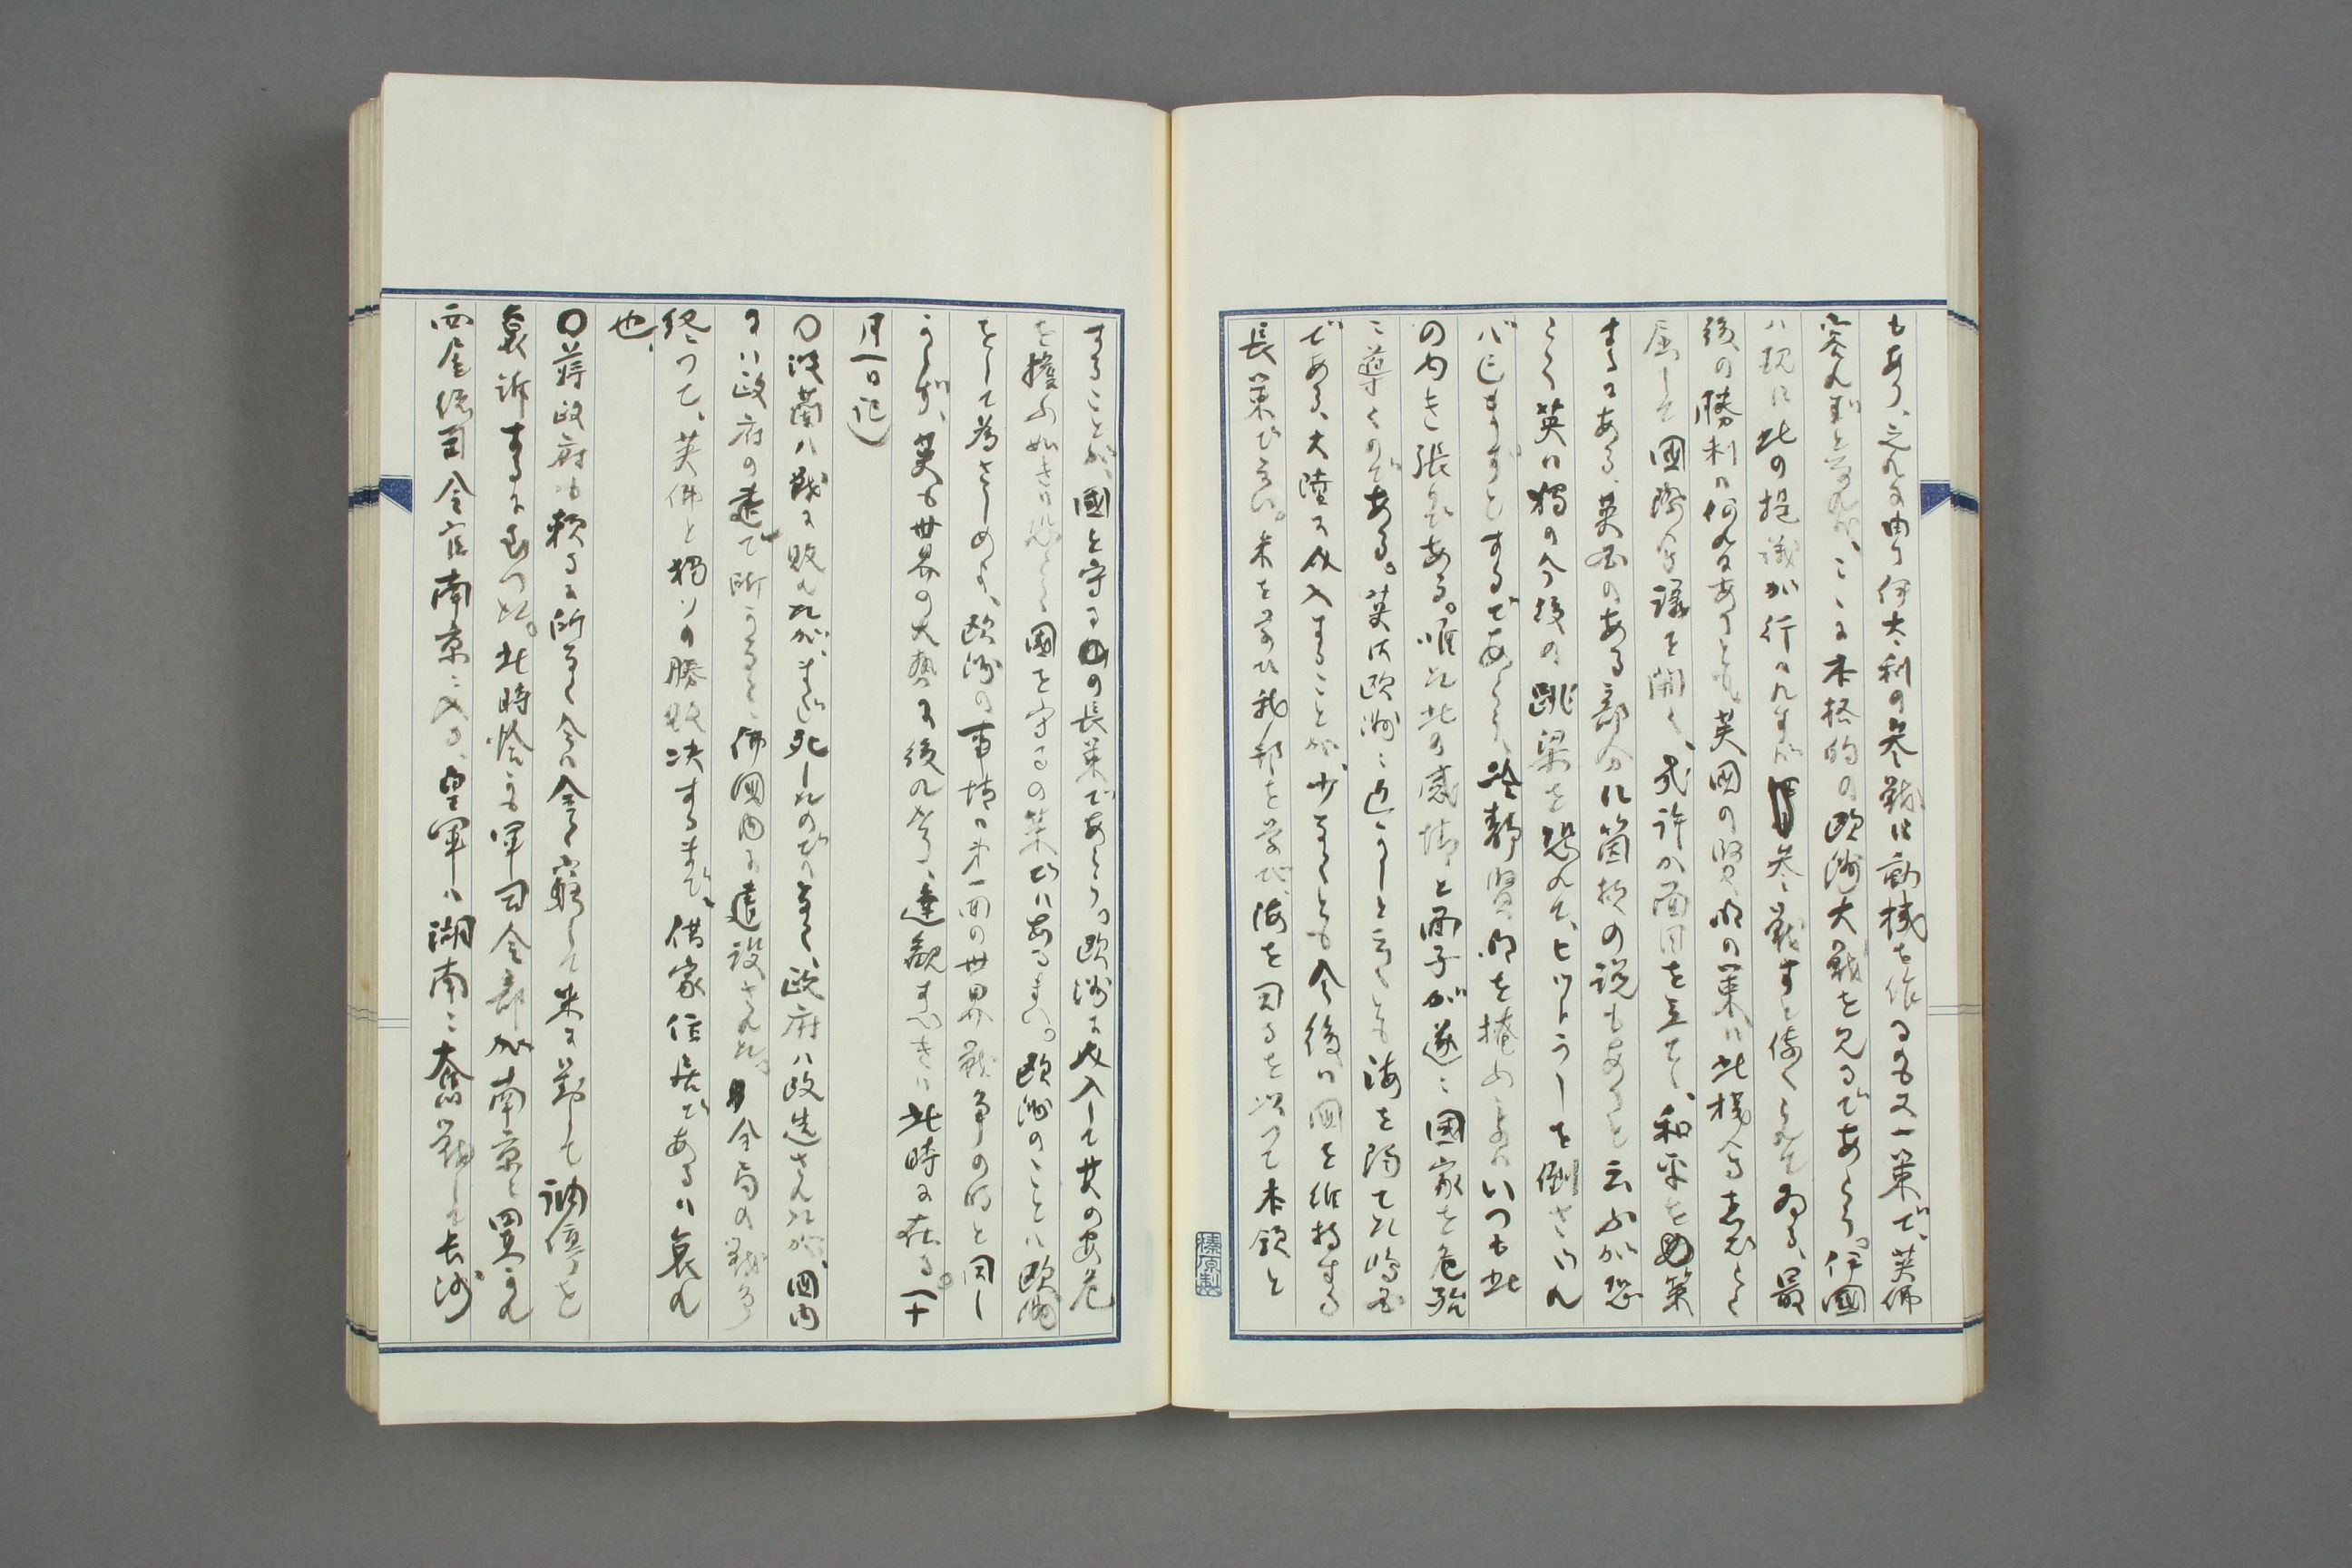 もあり、之れに由り伊太利の参戦に動機を作るも又一策で、英佛
容れずと言へば、こゝに本格的の欧洲大戦を見るであらう。伊國
ハ現に此の提議が行われずバ参戦すと傳へられてゐる、最
後の勝利は何れにありとも、英國の賢明の策は此機会を
屈して國際会議を開く、幾許か面目を立て、和平を策
するにある、英国のある部分に箇様の説もあると云ふが恐
らく英は獨の今後の跳梁を恐れて、ヒットラーを倒さん
バ已まずとするであらう、冷静賢明を掩ふものはいつも此
の内き張である。唯此の感情と面子が遂に國家を危殆
に導くのである。英は欧洲に近しと云へども海を隔てた嶋国
である、大陸に介入することが少なくとも今後は國を維持する
長策でない。米を学び我邦を学び、海を司るを以って本領と
することが國を守るの長策であらう。欧洲に介入して其の安危
を擔ふ如きは恐らく國を守るの策ではあるまい。欧洲のことは欧洲
をして為さしめよ、欧洲の事情は第一回の世界戦争の時と同し
からず、英も世界の大勢に後れ了る、達観すべきは此時に在る。(十
月一日記)
〇波蘭ハ戦に敗れたが、まだ死したのでなく、政府ハ改造されたが、國内
にハ政府の建て所うると、佛國内に建設された。全局の戦争
終って、英佛と獨ソの勝敗決するまで、借家住居であるは哀れ
也、
〇蒋政府も頼るに所なく今は全く窮して米に対して調停を
哀訴するに至った。此時恰も軍司令部が南京に置かれ
西尾総司令官南京に入る、皇軍ハ湖南に奮戦して長沙
榛原製